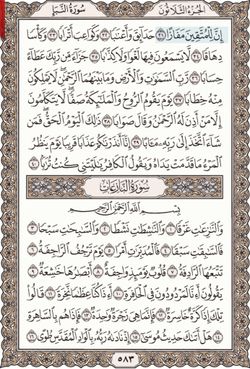 الجزء الثلاثون سورة النبإ
إِنَّ لِلْمُتَّقِينَ مَفَازًا ٣١ حَدَائِقَ وَأَعْنَابًا ٣٢ وَكَوَاعِبَ أَتْرَابًا ٣٣ وَكَأْسًا
دِهَاقًا ٣٤ لَّا يَسْمَعُونَ فِيهَا لَغْوًا وَلَا كِذَّابًا ٣٥ جَزَاءً مِّن رَّبِّكَ عَطَاءً
حِسَابًا ٣٦ رَّبِّ السَّمَاوَاتِ وَالْأَرْضِ وَمَا بَيْنَهُمَا الرَّحْمَٰنِ لَا يَمْلِكُونَ
مِنْهُ خِطَابًا ٣٧ يَوْمَ يَقُومُ الرُّوحُ وَالْمَلَائِكَةُ صَفًّا لَّا يَتَكَلَّمُونَ
إِلَّا مَنْ أَذِنَ لَهُ الرَّحْمَٰنُ وَقَالَ صَوَابًا ٣٨ ذَٰلِكَ الْيَوْمُ الْحَقُّ فَمَن
شَاءَ اتَّخَذَ إِلَىٰ رَبِّهِ مَآبًا ٣٩ إِنَّا أَنذَرْنَاكُمْ عَذَابًا قَرِيبًا يَوْمَ يَنظُرُ
الْمَرْءُ مَا قَدَّمَتْ يَدَاهُ وَيَقُولُ الْكَافِرُ يَا لَيْتَنِي كُنتُ تُرَابًا ٤٠
سورة النازعات
بِسْمِ اللَّهِ الرَّحْمَٰنِ الرَّحِيمِ
وَالنَّازِعَاتِ غَرْقًا ١ وَالنَّاشِطَاتِ نَشْطًا ٢ وَالسَّابِحَاتِ سَبْحًا ٣
فَالسَّابِقَاتِ سَبْقًا ٤ فَالْمُدَبِّرَاتِ أَمْرًا ٥ يَوْمَ تَرْجُفُ الرَّاجِفَةُ ٦
تَتْبَعُهَا الرَّادِفَةُ ٧ قُلُوبٌ يَوْمَئِذٍ وَاجِفَةٌ ٨ أَبْصَارُهَا خَاشِعَةٌ ٩
يَقُولُونَ أَإِنَّا لَمَرْدُودُونَ فِي الْحَافِرَةِ ١٠ أَإِذَا كُنَّا عِظَامًا نَّخِرَةً ١١ قَالُوا
تِلْكَ إِذًا كَرَّةٌ خَاسِرَةٌ ١٢ فَإِنَّمَا هِيَ زَجْرَةٌ وَاحِدَةٌ ١٣ فَإِذَا هُم بِالسَّاهِرَةِ
١٤ هَلْ أَتَاكَ حَدِيثُ مُوسَىٰ ١٥ إِذْ نَادَاهُ رَبُّهُ بِالْوَادِ الْمُقَدَّسِ طُوًى ١٦
٥٨٣